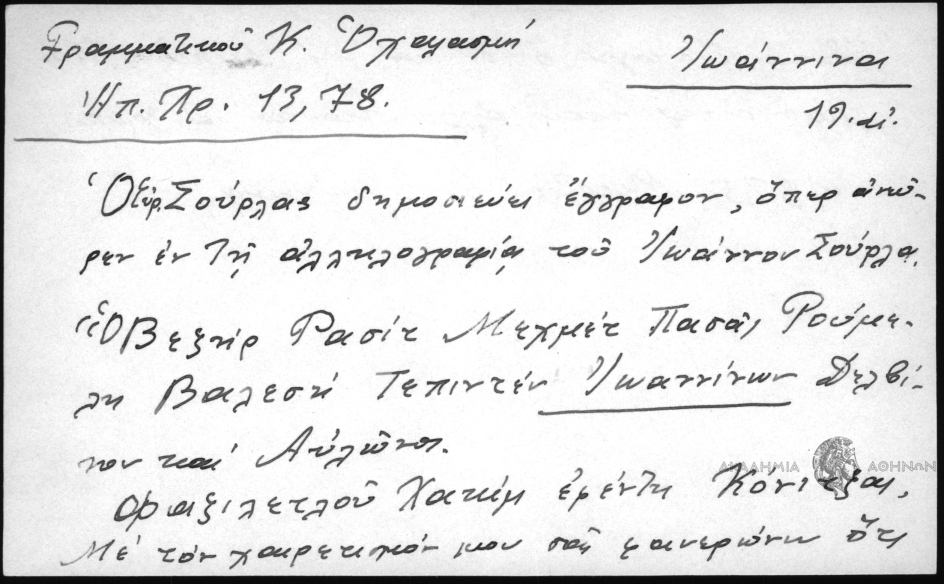 Γραμματικοῦ Κ. Ὁ χαλασμὴ
Ἰωάννινα
Ἠπ. Ἡμ. 13, 78.
19. αἰ.
Ὁ Εὐρ. Σούρλας δημοσιεύει ἔγγραφον, ὅπερ ἀνεῦ-
ρεν ἐν τῇ ἀλληλογραφίᾳ τοῦ Ἰωάννου Σούρλα.
"Ὁ Βεζὴρ Ρασὶτ Μεχμὲτ Πασᾶς Ρούμε-
λη Βαλεσὴ Τεπιντὲν Ἰωαννίνων Δελβί-
νου καὶ Αὐλῶνος.
Φαζιλετλοῦ Χατὴμ ἐφέντη Κονίτζας,
Μὲ τὸν χαιρετισμόν μου σᾶς φανερώνω ὅτι
ΑΚΑΔΗΜΙΑ ΑΘΗΝΩΝ